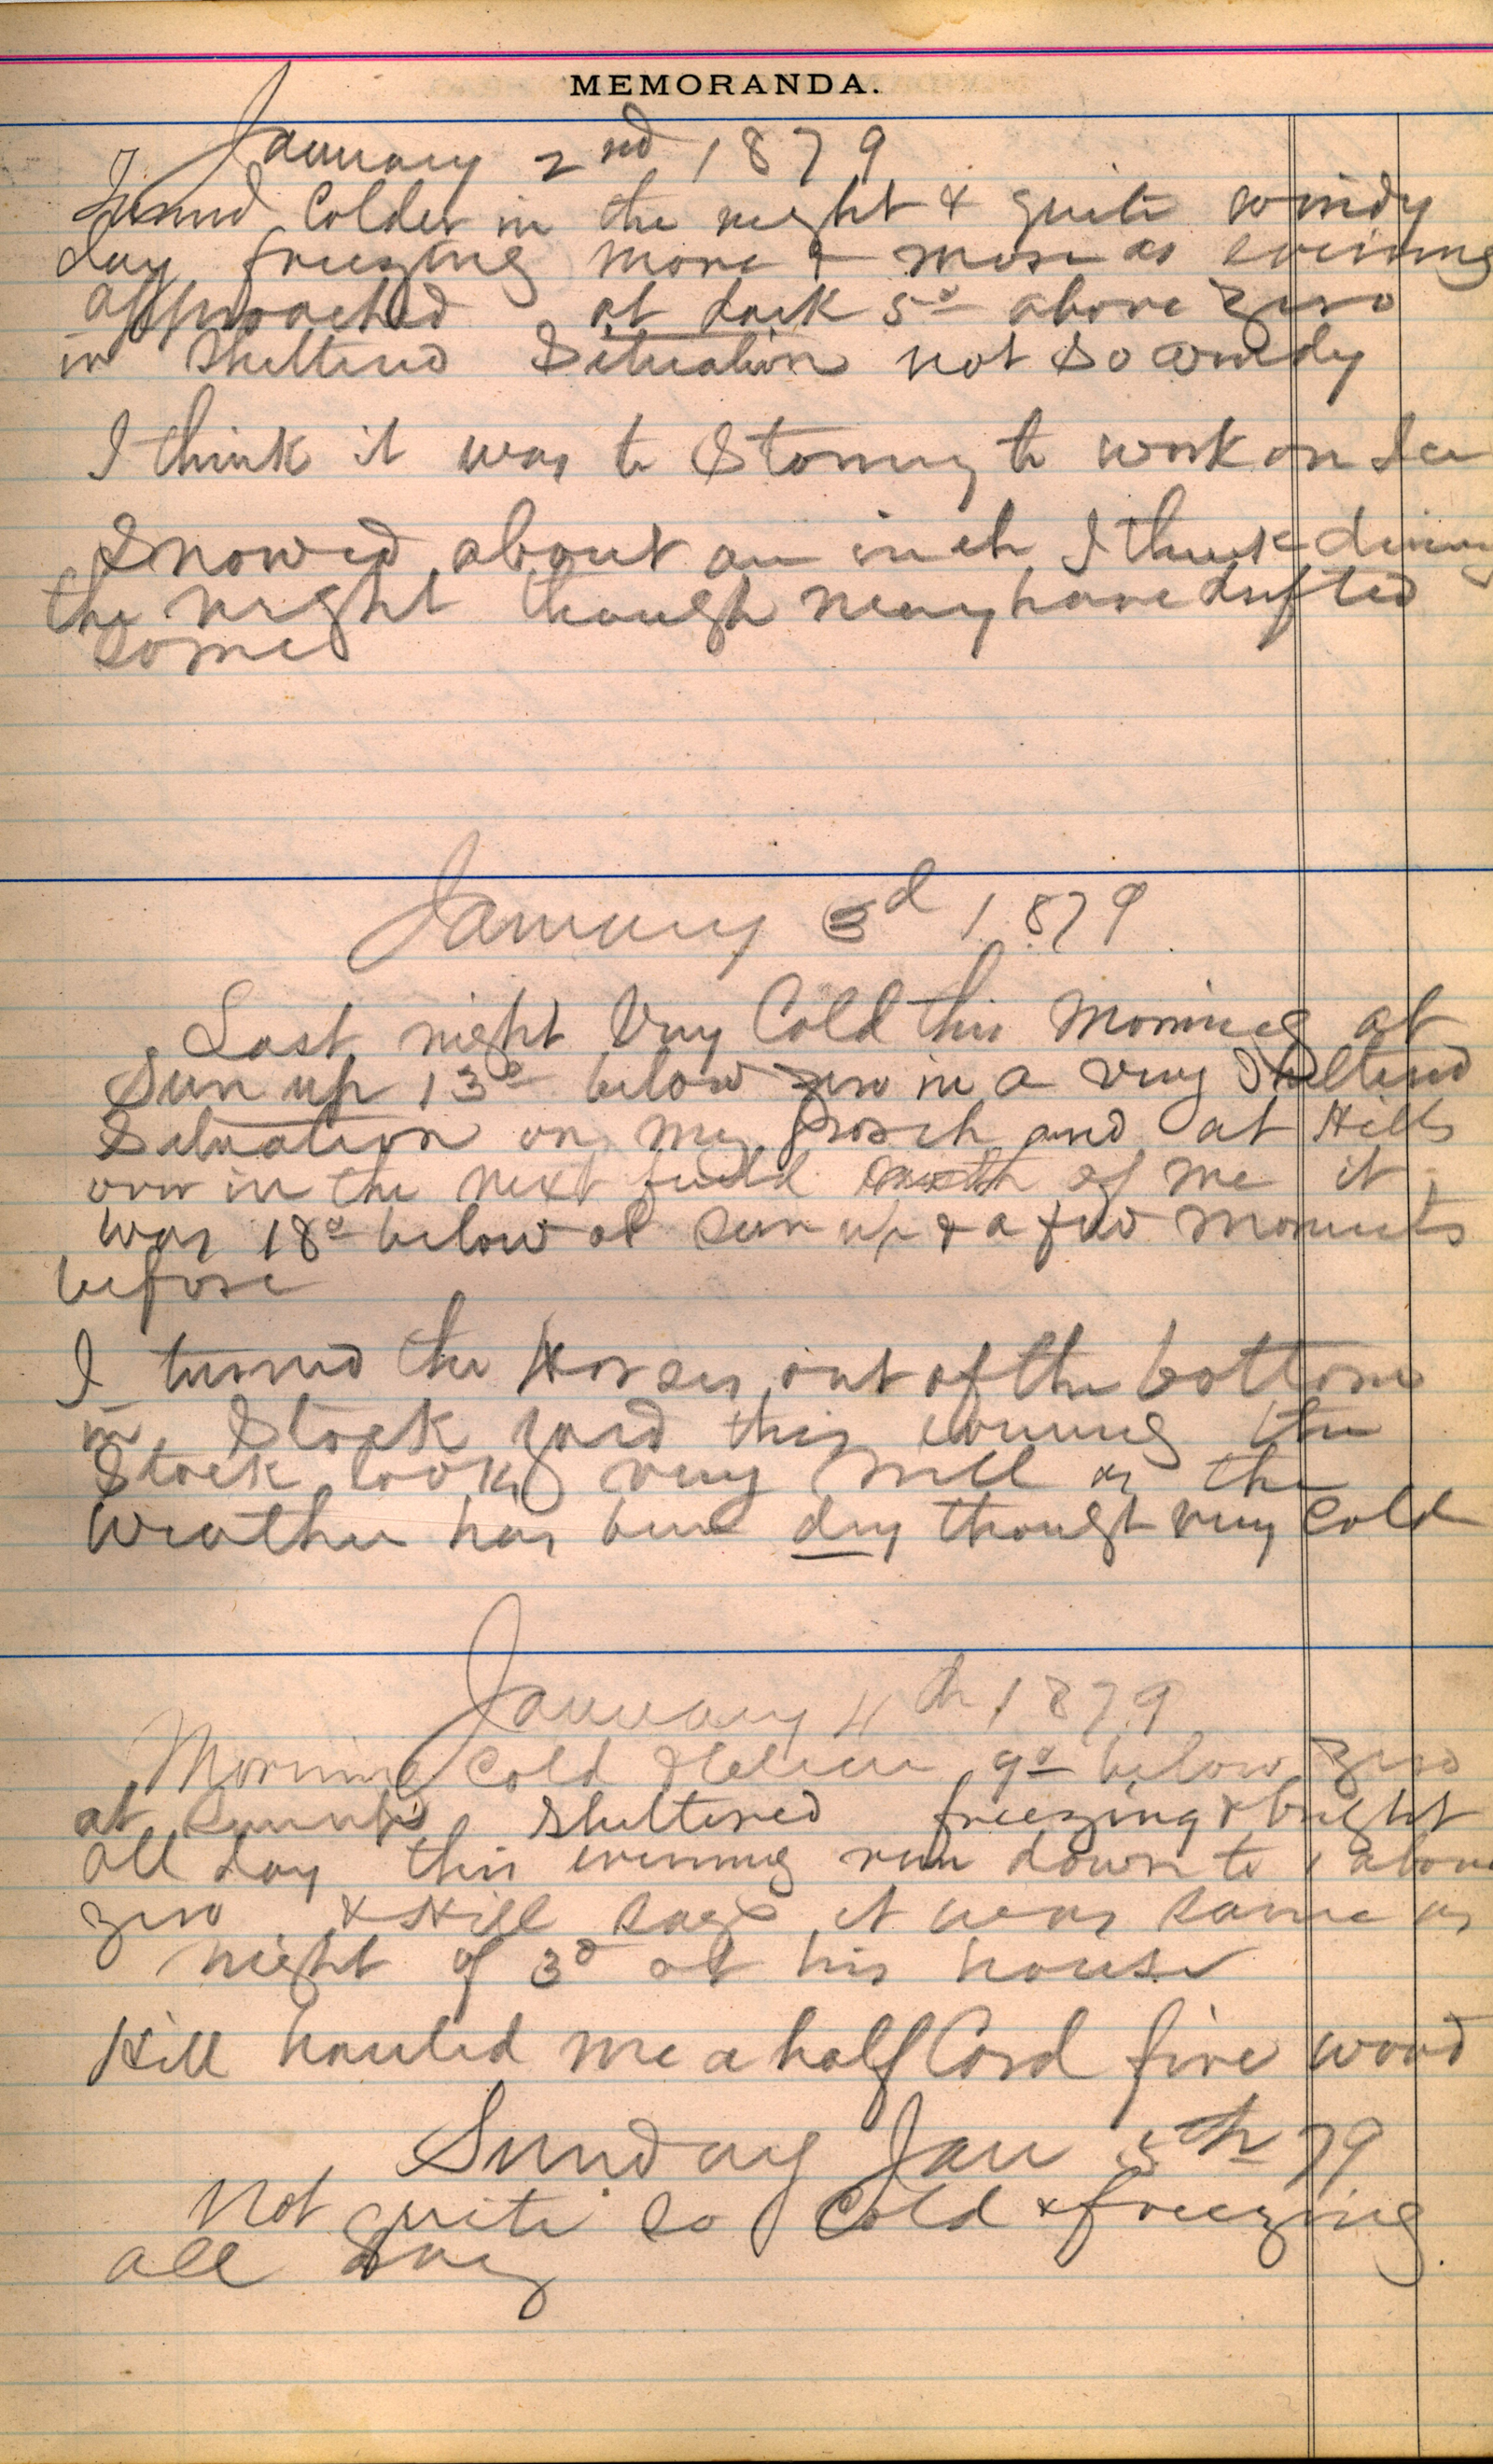 MEMORANDA.
January 2nd 1879
Turned Colder in the night & quite windy
day freezing more & more as evening
approached at dark 5° above zero
in Sheltered Situation not so windy
I think it was to Stormy to work on Ice
Snowed about an inch I think during
the night though may have drifted
some
January 3d 1879
Last night Very Cold this Morning at
Sun up 13° below zero in a very Sheltered
Situation on my porch and at Hills
over in the next field of me it
was 18° below at Sun up & a few moments
before
I turned the Horses out of the bottom
in Stock yard this evening the
Stock looks very well as the
Weather has been dry though very Cold
January 4th 1879
Morning Cold 9° below zero
at Sheltered freezing & bright
all day this evening run down to 1 above
zero & Hill says it was same as
night of 3d at his house
Hill hauled me a half Cord fire wood
Sunday Jan 5th 79
Not quite so Cold & freezing
all day